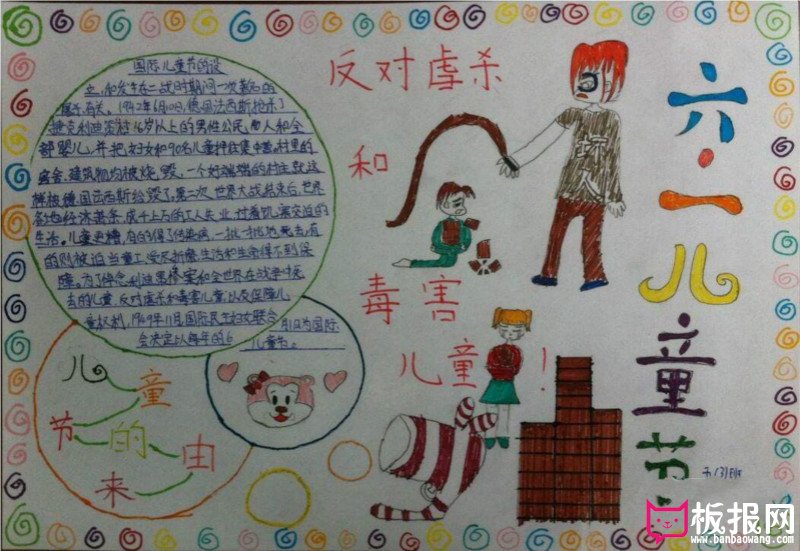 国际儿童节的设
立,和发生在二战时期间一次著名的
屠杀有关。1942年6月10日,德国法西斯枪杀了
捷克利迪策村16岁以上的男性公民
人和全
部婴儿,并把妇女和90名儿童押往集中营,村里的
房舍、建筑物均被烧毁,一个好端端的村庄就这
样被德国法西斯给毁了。第二次世界大战结束后,世界
各地经济萧条,成千上万的工人失业,过着饥寒交迫的
生活。儿童更糟,有的得了传染病,一批一批地死去,有
的则被迫当童工,受尽折磨,生活和生命得不到保
障。为了悼念利迪策惨案和全世界在战争中死
去的儿童,反对虐杀和毒害儿童,以及保障儿
童权利,1949年11月国际民主妇女联合
会决定以每年的6
月1日为国际
儿童节。
反对虐杀
和
毒害
儿童!
坏人
六·一儿童节
儿童
节的由
来
板报网
www.banbaowang.com